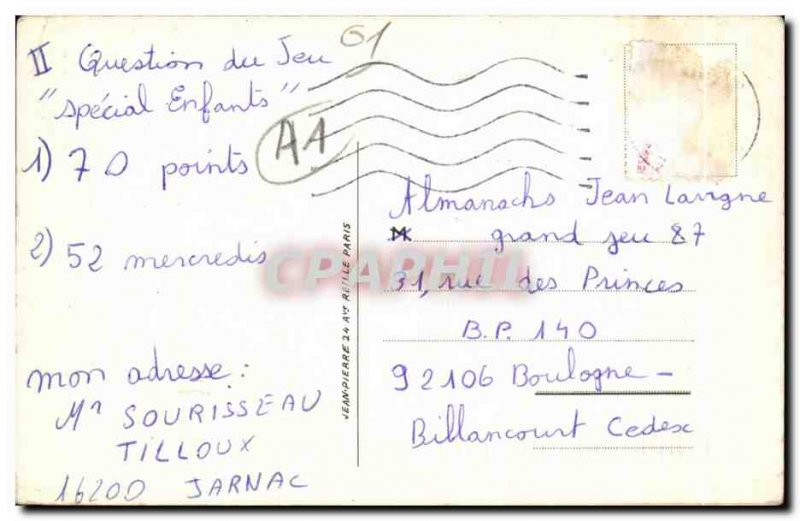 61
II Question du Jeu
"spécial Enfants"
A1
1) 70 points
2) 52 mercredis
mon adresse :
Mr SOURISSEAU
TILLOUX
16200 JARNAC
JEAN-PIERRE 24 AVE REILLE PARIS
Almanachs Jean Lavigne
grand jeu 87
31, rue des Princes
B.P. 140
92106 Boulogne -
Billancourt Cedex
CPAPHIL